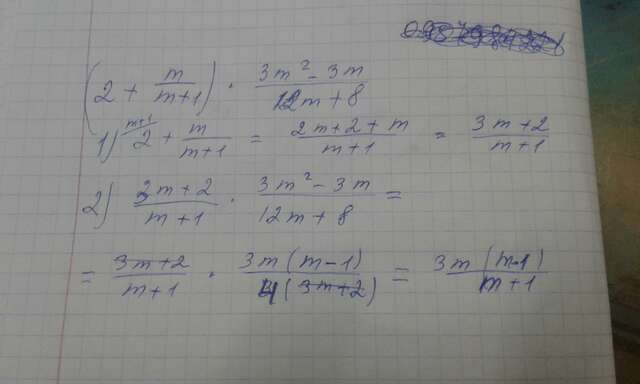 (2 + m/(m+1)) · (3m² - 3m)/(12m + 8)
1) 2^(m+1) + m/(m+1) = (2m + 2 + m)/(m+1) = (3m + 2)/(m+1)
2) (3m + 2)/(m+1) · (3m² - 3m)/(12m + 8) =
= (3m + 2)/(m+1) · (3m(m-1))/(4(3m+2)) = (3m(m-1))/(m+1)